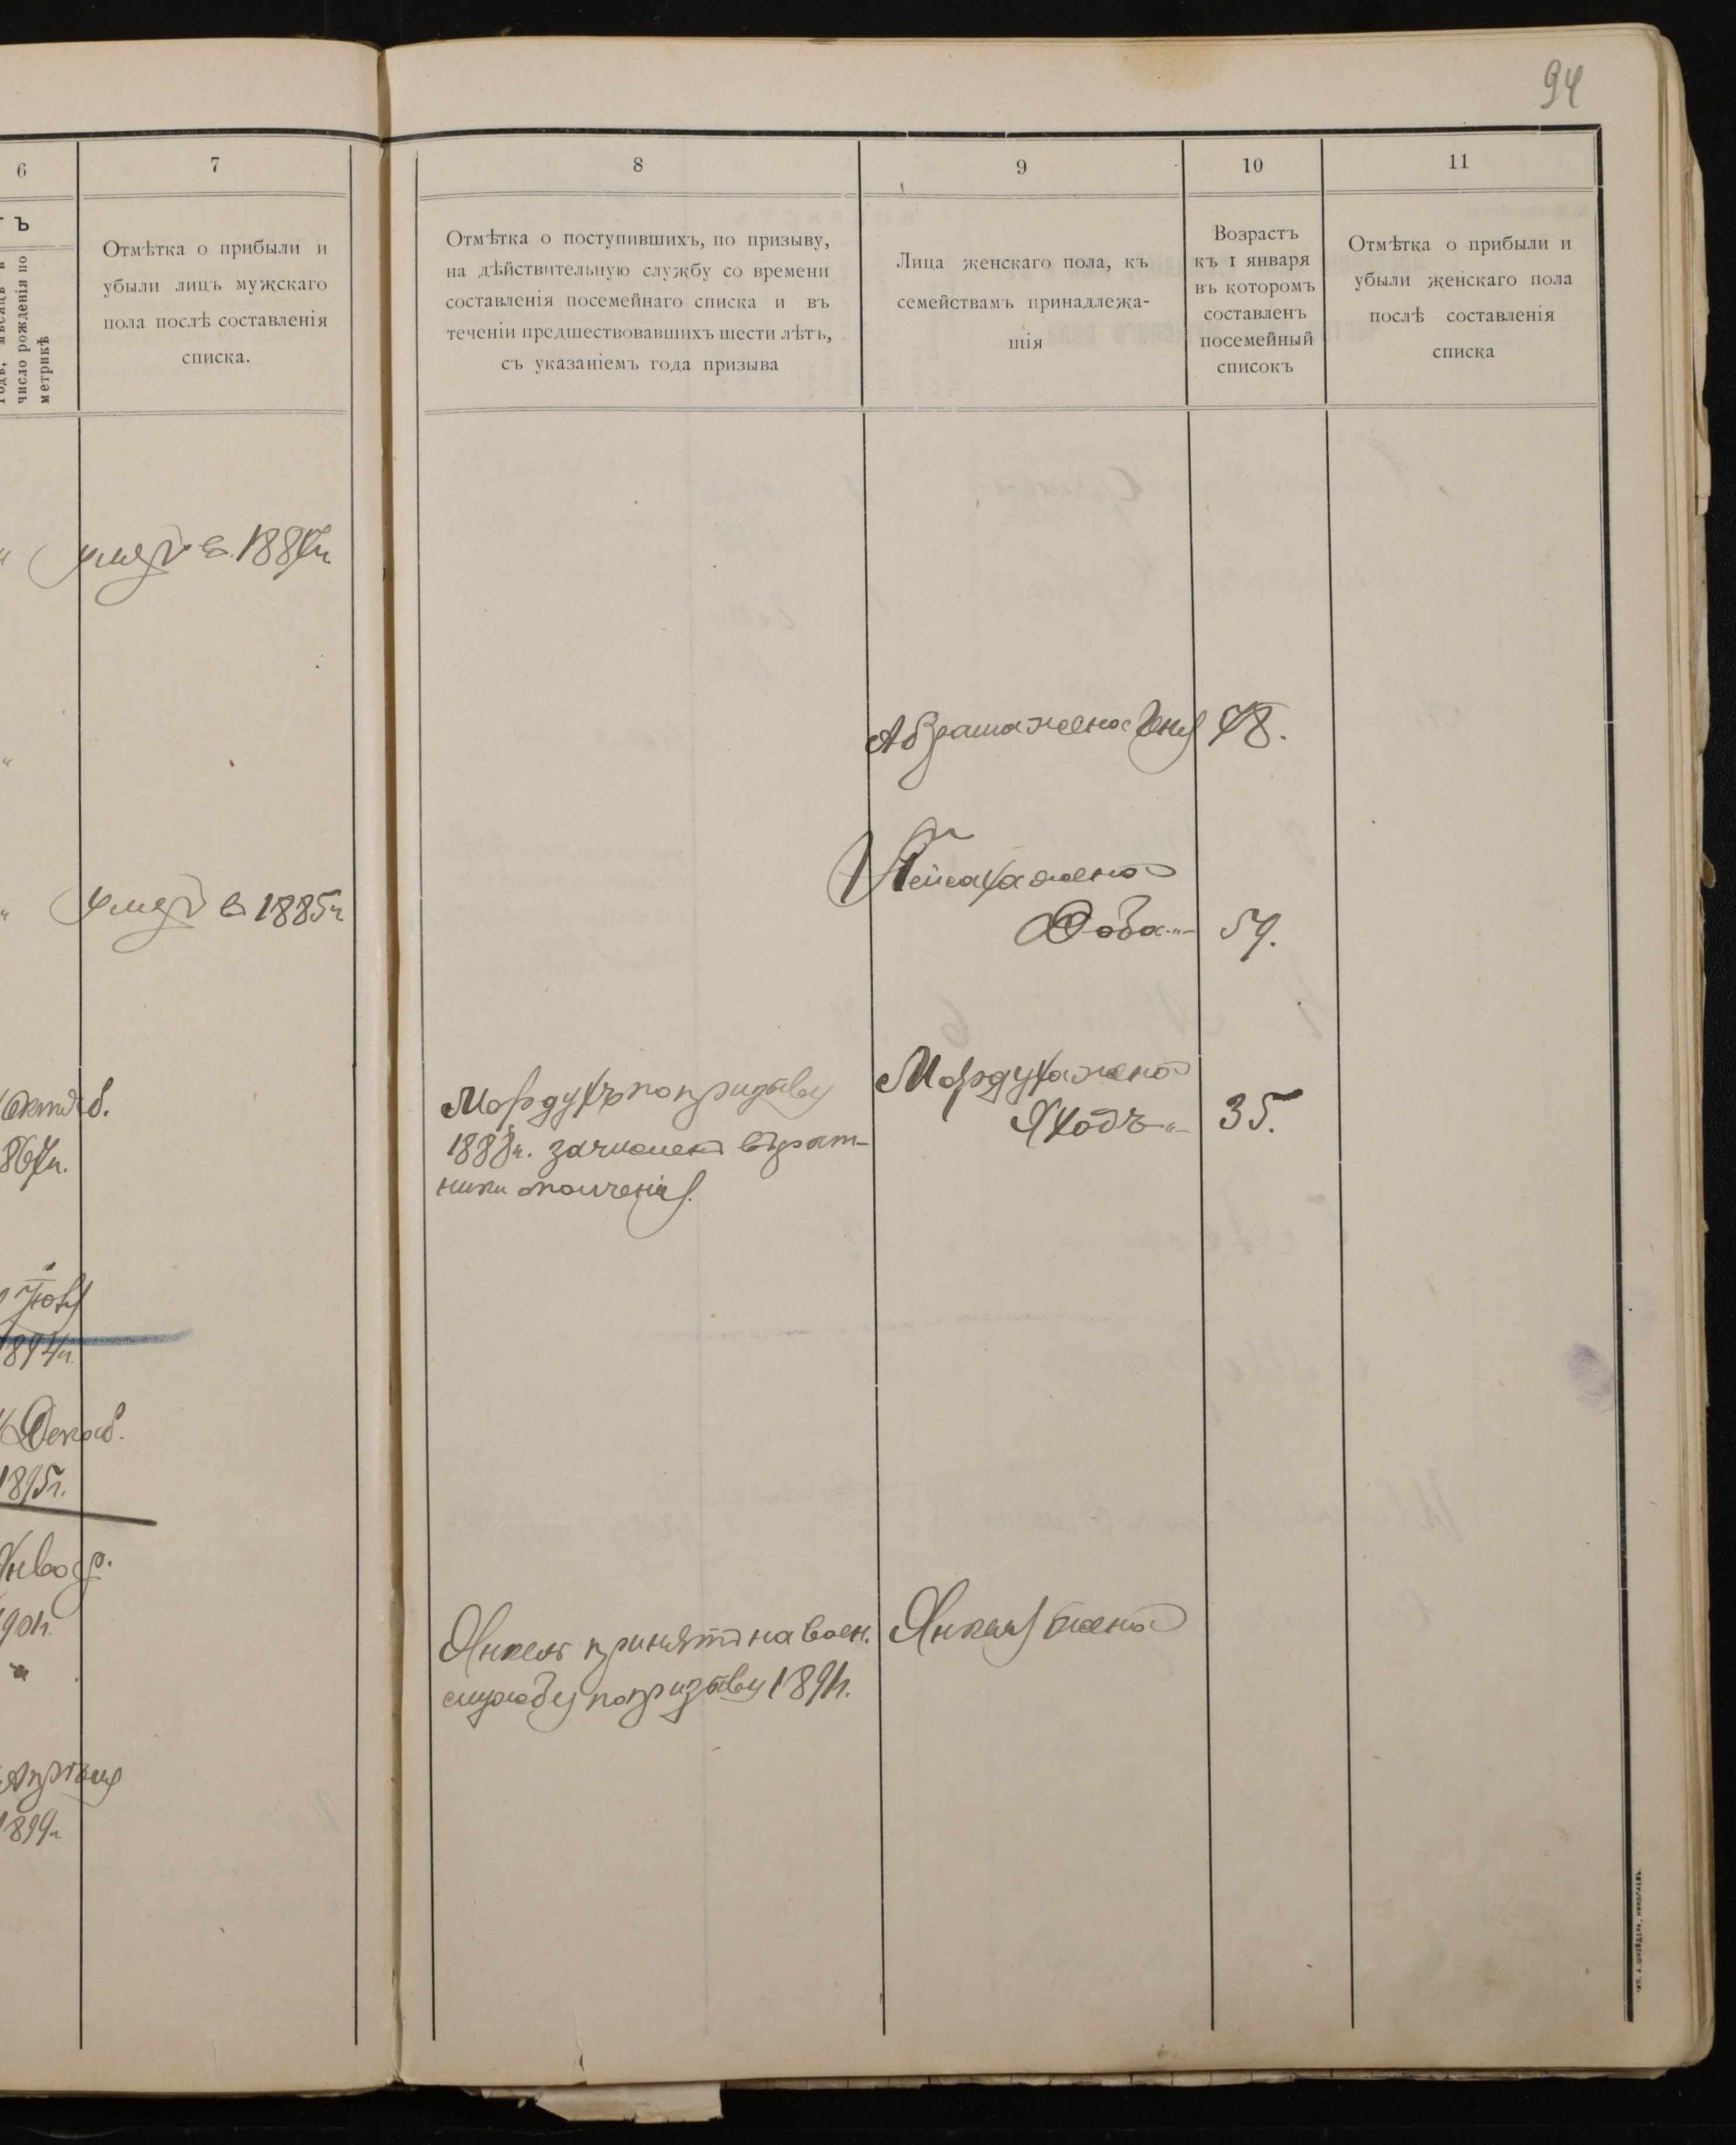 94
6
7
8
9
10
11
ъ
число рожденія по
метрикѣ
Отмѣтка о прибыли и
убыли лицъ мужскаго
пола послѣ составленія
списка.
Отмѣтка о поступившихъ, по призыву,
на дѣйствительную службу со времени
составленія посемейнаго списка и въ
теченіи предшествовавшихъ шести лѣтъ,
съ указаніемъ года призыва
Лица женскаго пола, къ
семействамъ принадлежа-
щія
Возрастъ
къ 1 января
въ которомъ
составленъ
посемейный
списокъ
Отмѣтка о прибыли и
убыли женскаго пола
послѣ составленія
списка
умеръ в
Абрама жена 48.
умеръ в 1885г
Пейсаха жена
Доба 59.
Октяб.
Мордухъ по призыву
1888г. зачисленъ въ рат-
ники ополченія.
Мордуха жена
35.
1894г.
Декаб.
1895г.
Январ.
Янкель принятъ на воен.
службу по призыву 1891г.
Янкеля жена
Апрѣля
1899г.